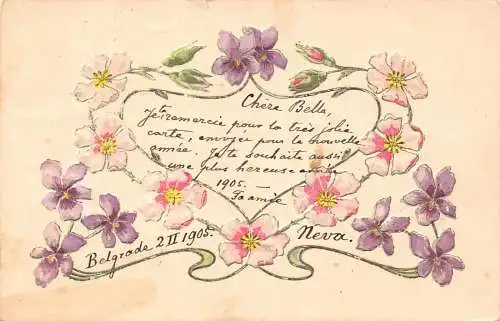 Chère Bella,
Je te remercie pour la très jolie
carte, envoyée pour la nouvelle
année. Je te souhaite aussi
une plus hereuse année
1905. —
Ta amie
Neva.
Belgrade 2 II 1905.